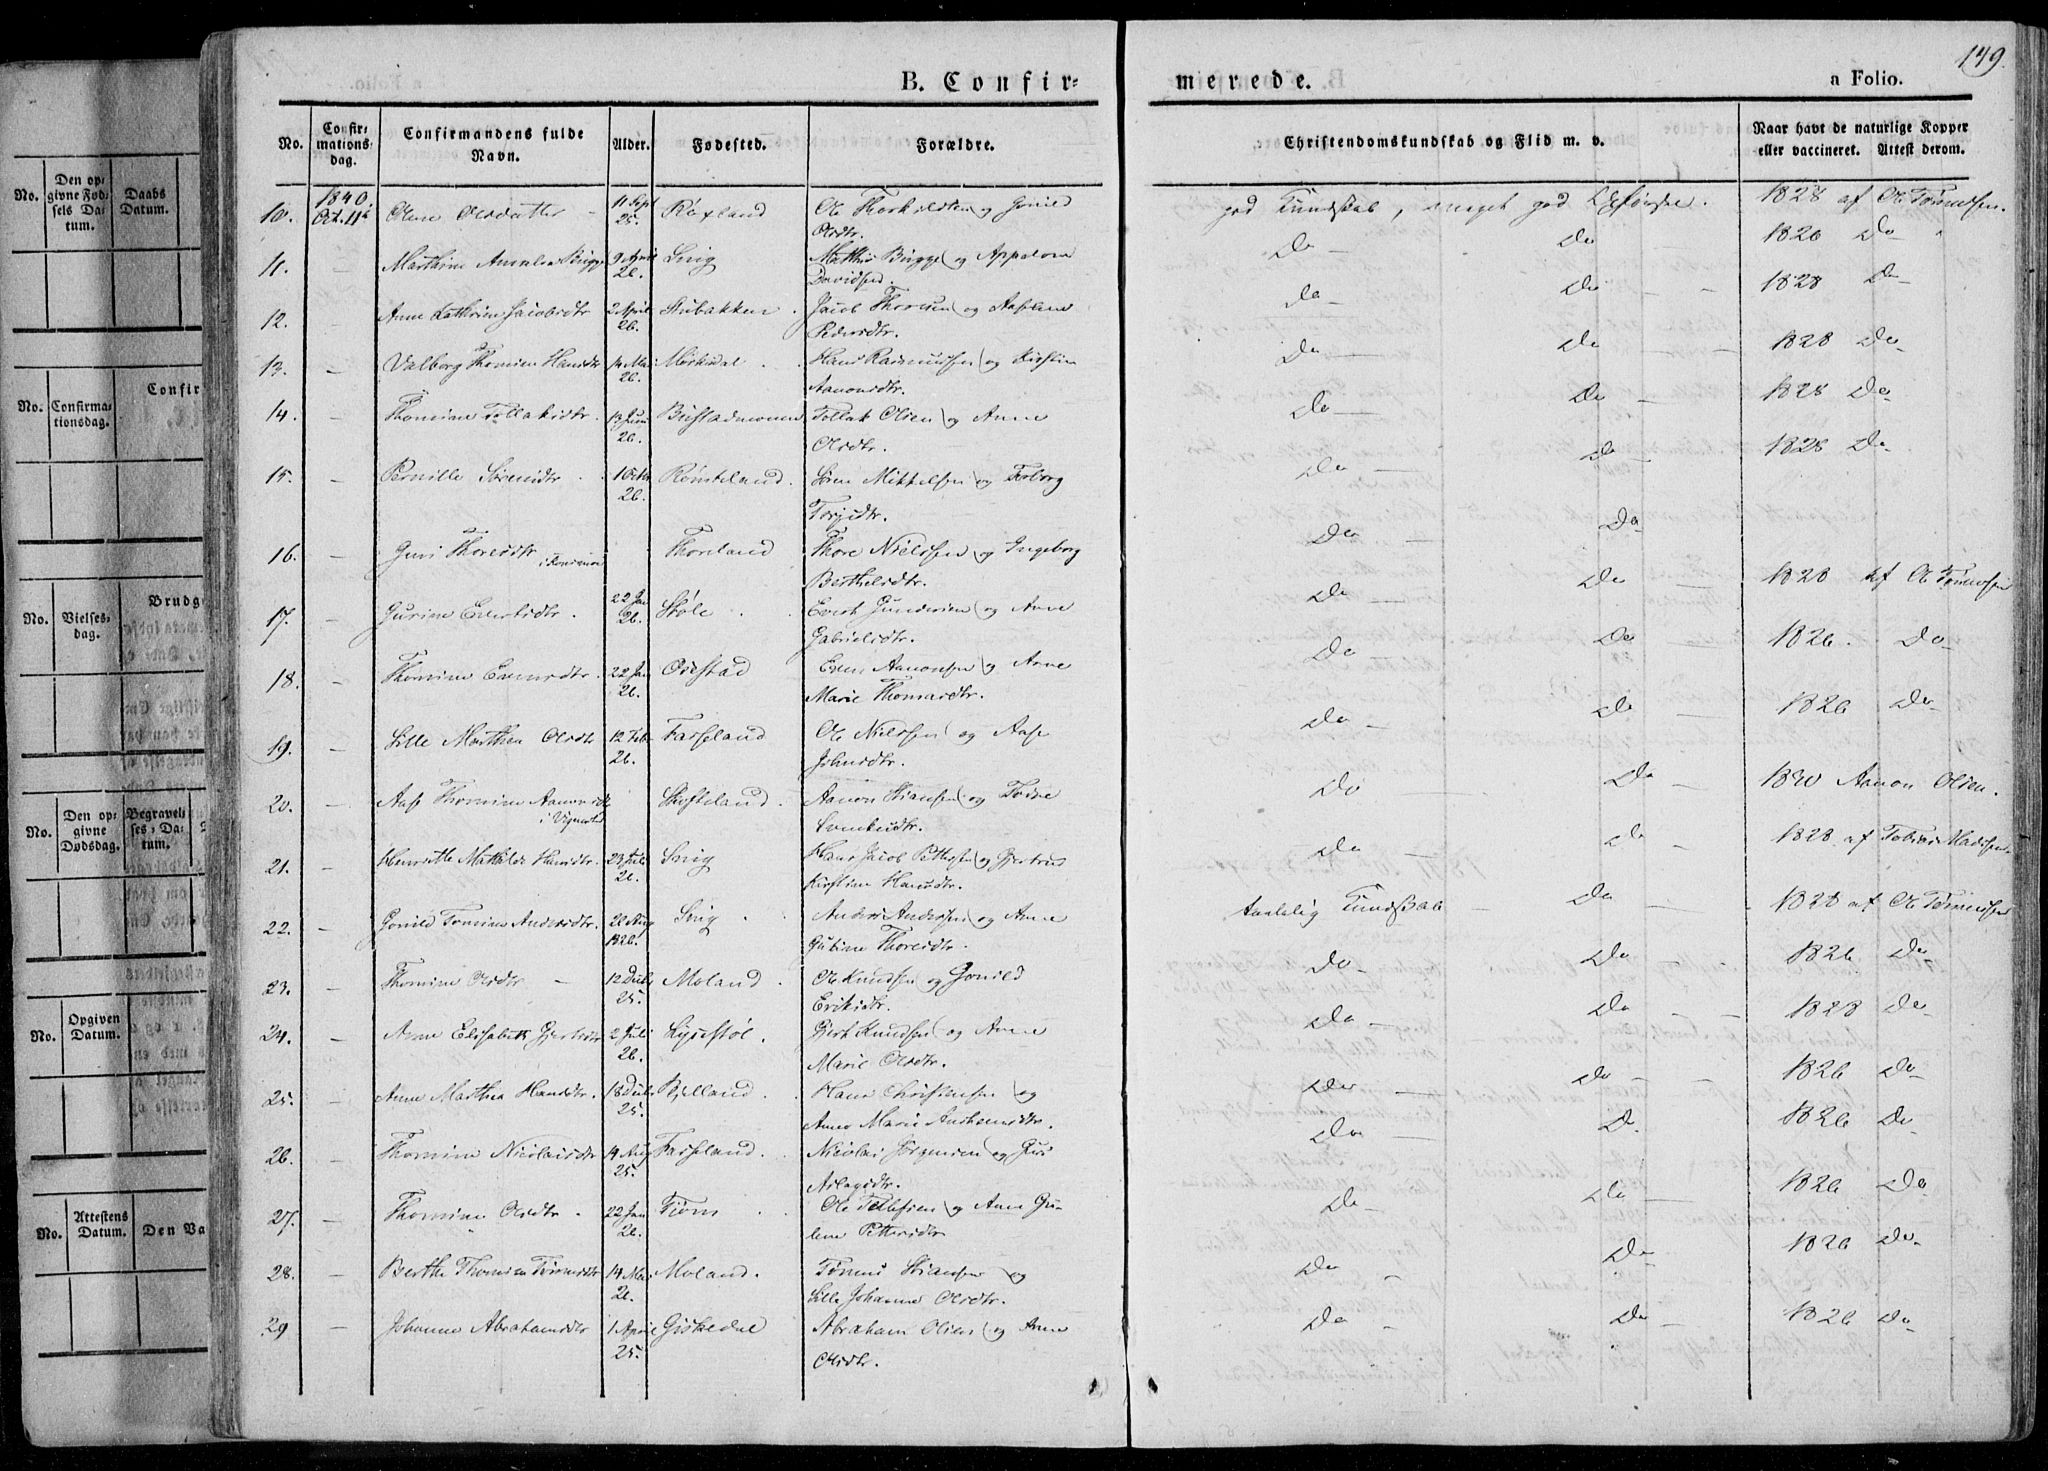 149.
B. Confir-
merede.
a Folio.
No.
Confir-
mations-
dag.
Confirmandens fulde
Navn.
Alder.
Fødested.
Forældre.
Christendomskundskab og Flid m. v.
Naar havt de naturlige Kopper
eller vaccineret. Attest derom.
10. 1840. Oct. 11te Olene Olsdatter 11 Sept 25. Røxland Ole Thorkildsen og Gonild
Olsdtr.
god Kundskab, meget god Opførsel. 1828 af Ole Tønnessen.
11. – Marthine Amalia Brigge 9 April 26. Snig Mathis Brigge og Appelone
Davidsen.
Do – Do – 1826 Do
12. – Anne Cathrine Jacobsdtr 2 April 26. Stubakken Jacob Thorsen og Aaslene
Pedersdtr.
Do – Do – 1828 Do
13. – Valborg Thomine Hansdtr 14 Mai 26. Mørkedal Hans Rasmussen og Kirstine
Aanonsdtr.
Do – Do – 1828 Do-
14. – Thomine Tollaksdtr. 13 Juni 26. Bustadmoen Tollak Olsen og Anne
Olsdtr.
Do – Do – 1828 Do-
15. – Pernille Sørensdtr 1 Octbr 26. Rønseland Søren Mikkelsen og Torborg
Torjusdtr.
Do – Do – 1828 Do-
16. – Guri Thoresdtr Thoreland Thore Nielsen og Ingeborg
Berthelsdtr.
Do – Do
17. – Gurine Evertsdtr. 22 Jan 26. Støle Evert Gundersen og Anne
Gabrielsdtr.
Do – Do – 1828 af O Tønnessen
18. – Thomine Evensdtr. 22 Jan 26. Ovestad Even Aanonsen og Anne
Marie Thomasdtr.
Do Do 1826. Do-
19. – Sille Marthea Olsdtr 12 Febr 26. Farseland Ole Nielsen og Aase
Johnsdtr.
Do – Do – 1826 Do-
20. – Aase Thomine Aanonsdtr Skofteland. Aanon Stiansen og Tobine
Do – Do 1830 Aanon Olsen.
21. – Henriette Mathilde Hansdtr. 23 Juli 26. Snig Hans Jacob Pettersen og Gjertrud
Kirstine Hansdtr.
Do – Do 1828 af Tobias Madssen.
22. – Gonild Tomine Andersdtr. 26 Aug 1826. Snig Anders Andersen og Anne
Gubine Thoresdtr.
taalelig Kundskab – Do – 1828 af O Tønnessen
23. – Thomine Olsdtr – 12 Decbr 25. Moland Ole Knudsen og Gonild
Eriksdtr.
Do- Do – 1826 Do
24. – Anne Elisabeth Gjertsdtr 2 Juli 26. Lysestøl. Gjert Knudsen og Anne
Marie Olsdtr.
Do – Do – – 1828 Do
25. – Anne Marthea Hansdtr. 18 Decbr 25. Bjelland. Hans Christensen og
Anne Marie Anstensdtr.
Do – Do – – 1826 Do-
26. – Thomine Nicolaisdtr 14 Aug 25. Farseland. Nicolai Jørgensen og Guri
Aslagsdtr.
Do – D. 1826 Do-
27. – Thomine Olsdtr 22 Jan 26. Tiøm Ole Tellefsen og Anne Gu-
lene Pettersdtr
Do – Do – 1826 Do
28. – Berthe Thomine Tønnesdtr 14 Mai 26. Moland. Tønnes Stiansen og
Sille Johanne Olsdtr.
Do – Do 1826 Do-
29 – Johanne Abrahamsdtr 1 April 25. Giskedal Abraham Olsen og Anne
Olsdtr.
Do – Do – 1826 Do-
No.
Den op-
givne Fød-
sels Da-
tum.
Daabs
Datum.
No.
Confirma-
tionsdag.
Confir
No.
Vielses-
dag.
Brudg
No.
Den op-
givne
Dødsdag.
Begravel-
ses-Da-
tum.
No.
Opgiven
Datum.
No.
Attestens
Datum.
Den Va